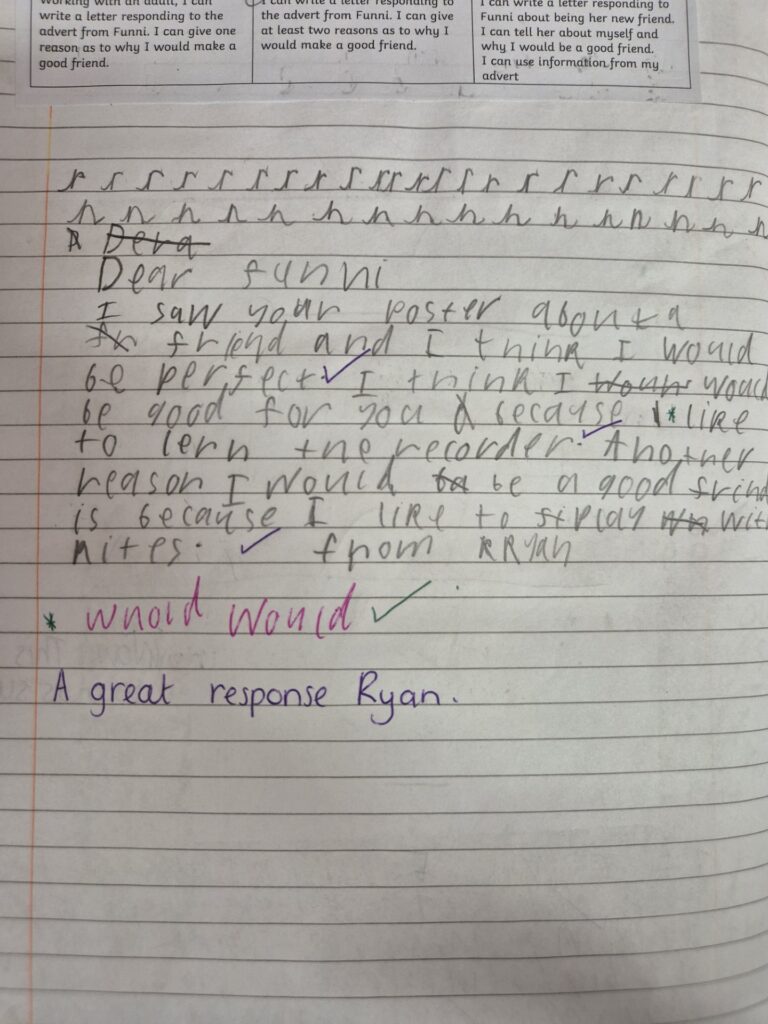 Working with an adult, I can
write a letter responding to the
advert from Funni. I can give one
reason as to why I would make a
good friend.
I can write a letter responding to
the advert from Funni. I can give
at least two reasons as to why I
would make a good friend.
I can write a letter responding to
Funni about being her new friend.
I can tell her about myself and
why I would be a good friend.
I can use information from my
advert
r r r r r r r r r r r r r r r r r r r r r r
n n n n n n n n n n n n n n n n
Dera
Dear funni
I saw your poster about a
friend and I think I would
be perfect I think I would
be good for you because I like
to lern the recorder. Another
reason I would be a good frind
is because I like to play with
nites. from Ryan
* whold would
A great response Ryan.